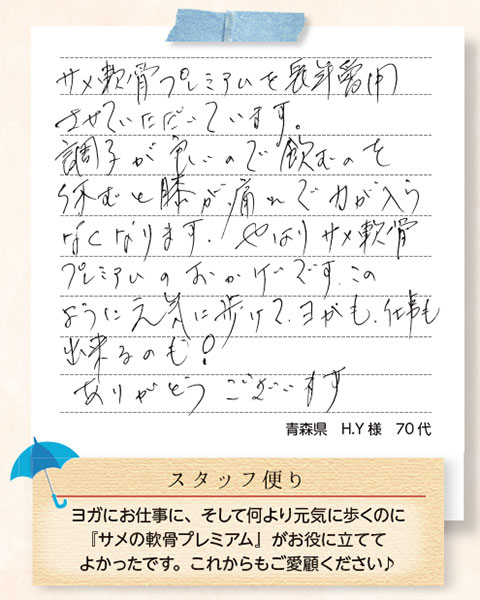 サメ軟骨プレミアムを長年愛用
させていただいています。
調子が良いので飲むのを
休むと膝が痛れで力が入ら
なくなります。やはりサメ軟骨
プレミアムのおかげです。この
ように元気に歩けて、ヨガも、仕事も
出来るのも!
ありがとうございます
青森県 H.Y様 70代
スタッフ便り
ヨガにお仕事に、そして何より元気に歩くのに
『サメの軟骨プレミアム』がお役に立てて
よかったです。これからもご愛顧ください♪